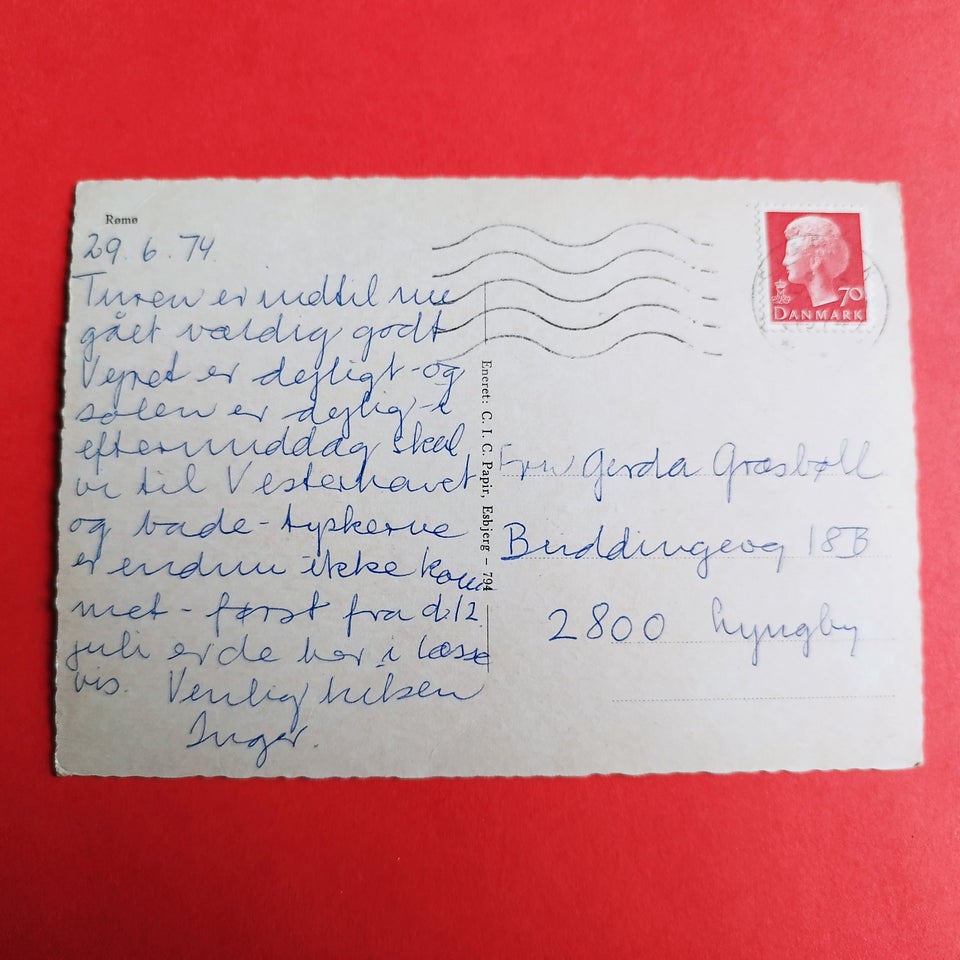 Rømø
29. 6. 74
Turen er indtil nu
gået vældig godt
Vejret er dejligt - og
solen er dejlig - i
eftermiddag skal
vi til Vesterhavet
og bade - tyskerne
er endnu ikke kom
met - først fra d. 12
juli er de her i læsse
vis. Venlig hilsen
Inger.
Eneret: C. I. C. Papir, Esbjerg – 794
70
DANMARK
Fru Gerda Græsbøll
Buddingevej 18B
2800 Lyngby